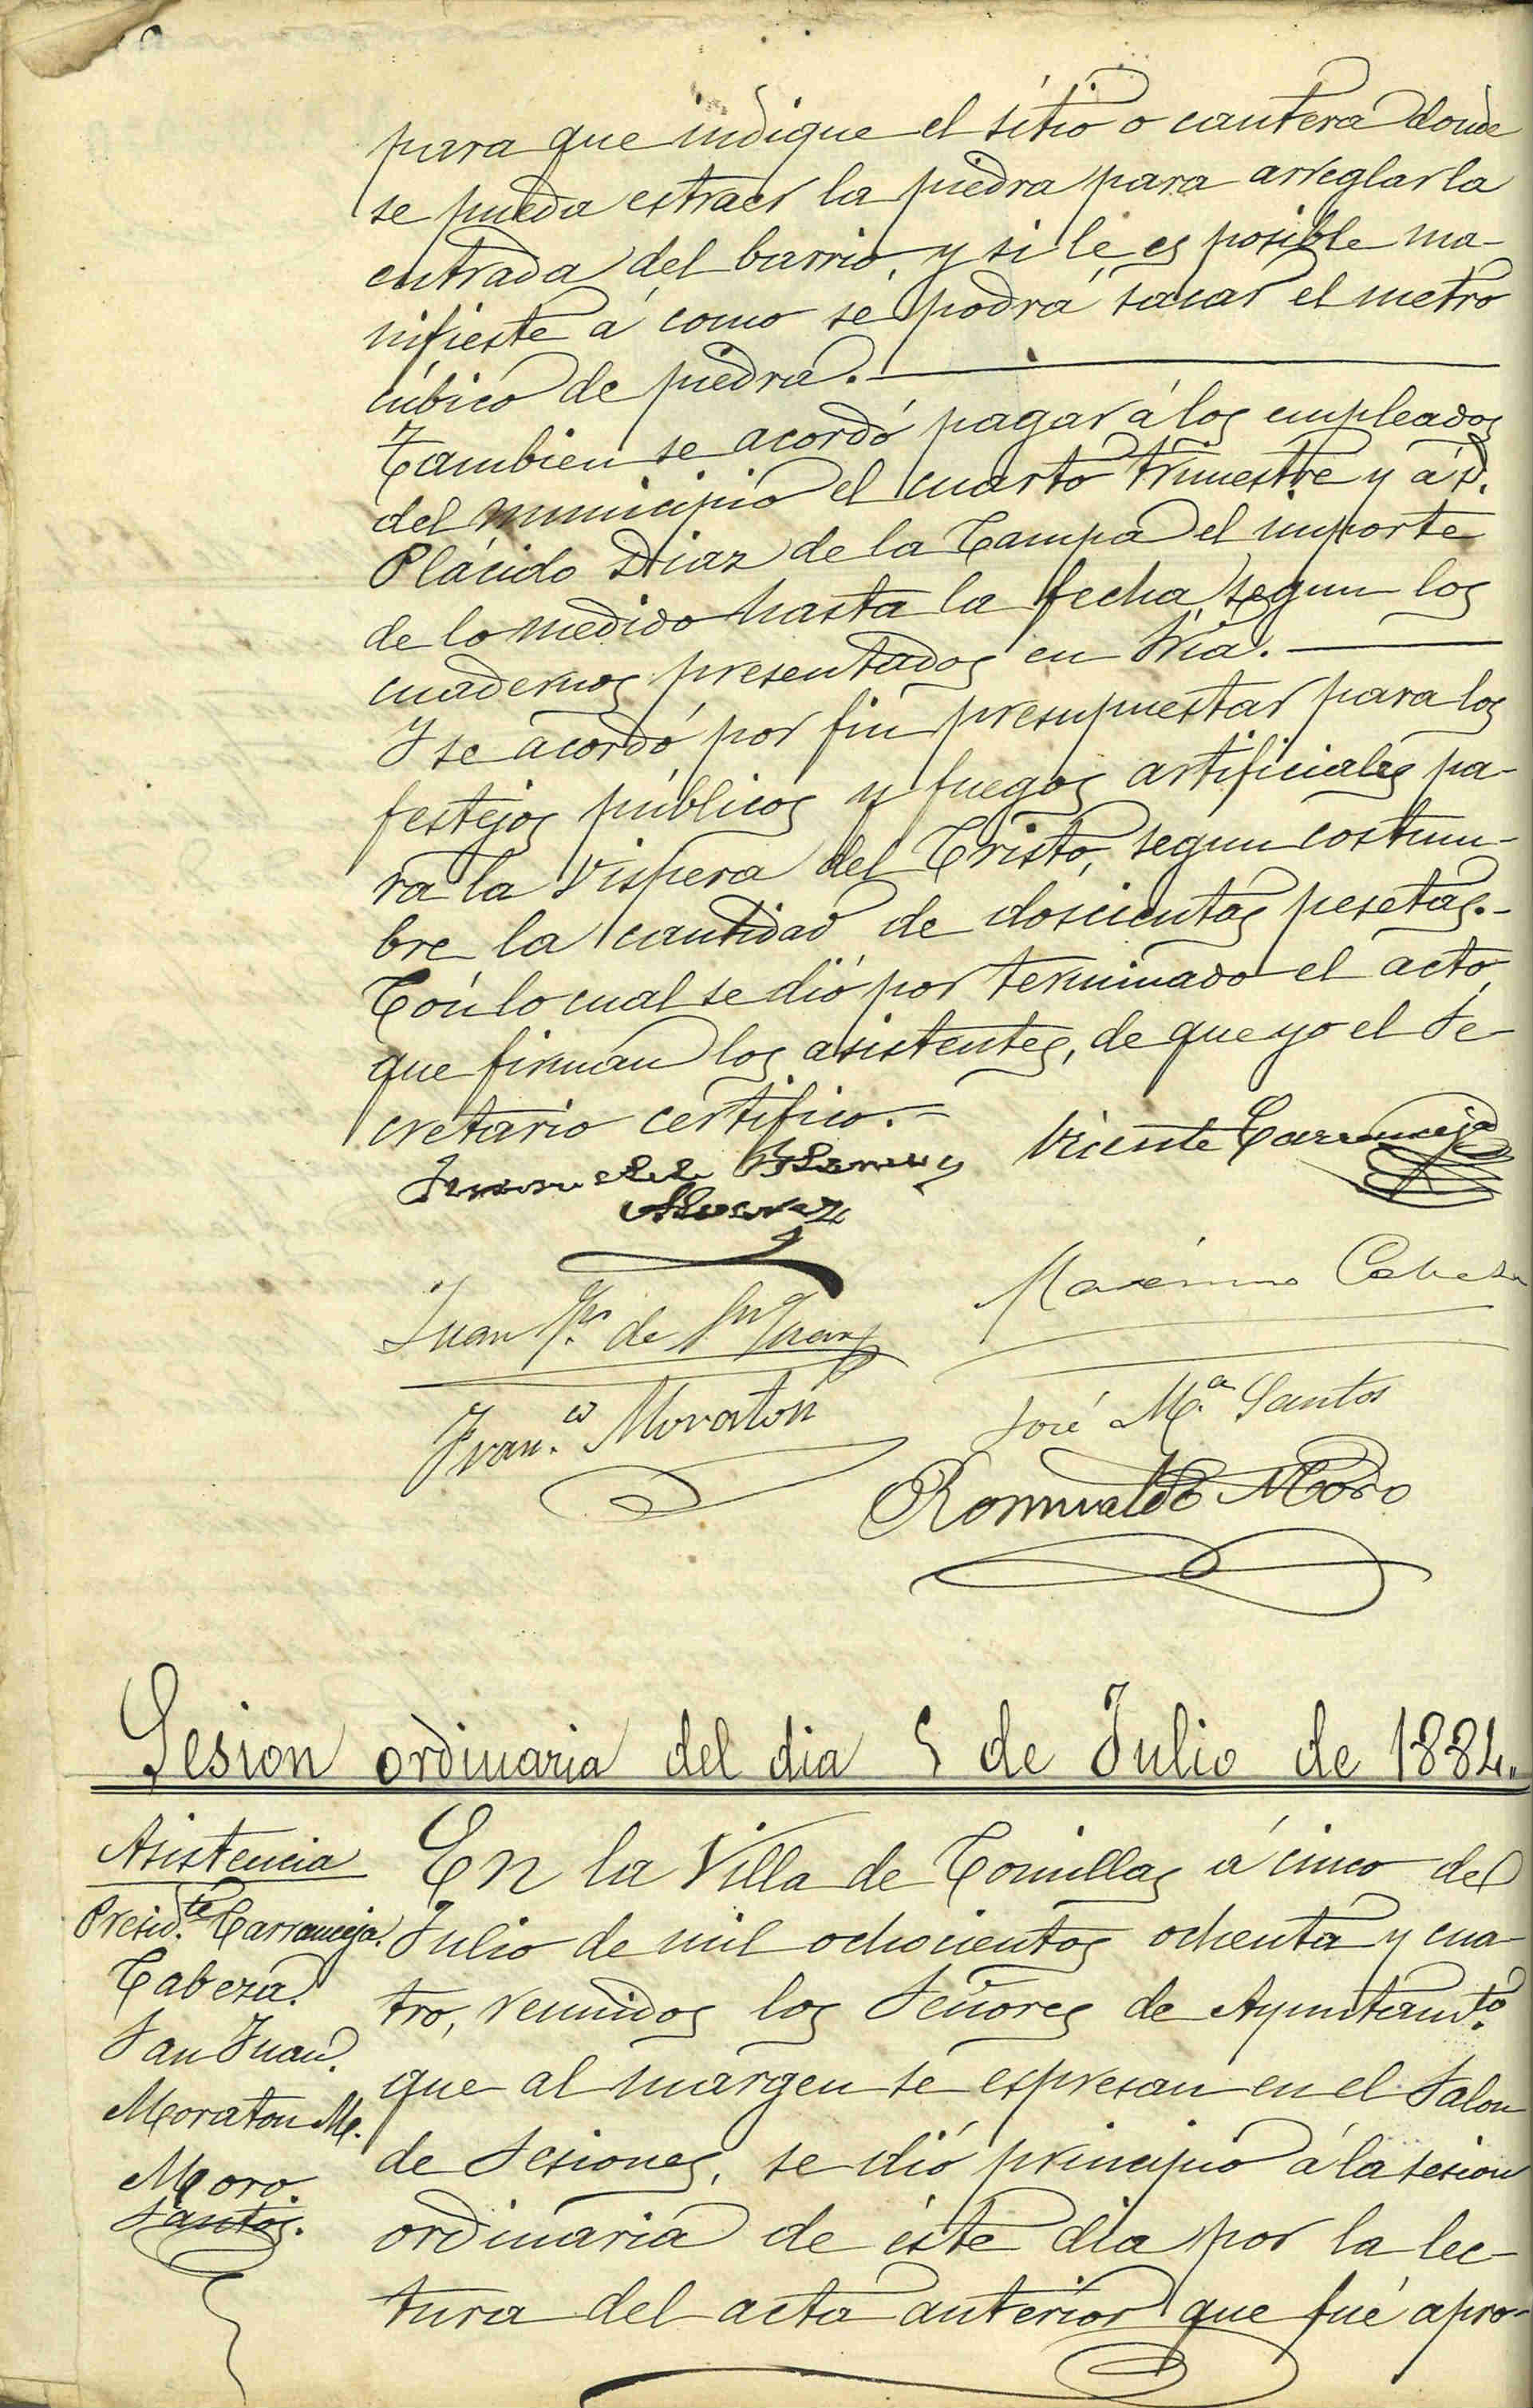 para que indique el sitio o cantera donde
se pueda estraer la piedra para arreglar la
entrada del barrio, y si le es posible ma-
nifieste á como se podrá sacar el metro
cúbico de piedra.
Tambien se acordó pagar á los empleados
del municipio el cuarto trimestre y á D.
Plácido Diaz de la Campa el importe
de lo medido hasta la fecha, segun los
cuadernos presentados en Sria.
Y se acordó por fin presupuestar para los
festejos públicos y fuegos artificiales pa-
ra la vispera del Cristo, segun costum-
bre la cantidad de doscientas pesetas.-
Con lo cual se dió por terminado el acto,
que firman los asistentes, de que yo el Se-
cretario certifico.=
Vicente Carranceja
Alvarez
Maximino Cabeza
Juan de
Fran.co Moratón
José M.a Santos
Romualdo Moro
Sesion ordinaria del dia 5 de Julio de 1884.
Asistencia
Presid.te Carranceja.
Cabeza.
San Juan.
Moraton M.
Moro.
Santos.
En la Villa de Comillas á cinco de
Julio de mil ochocientos ochenta y cua-
tro, reunidos los Señores de Ayuntam.to
que al margen se espresan en el Salon
de Sesiones, se dió principio á la sesion
ordinaria de éste dia por la lec-
tura del acta anterior que fué apro-